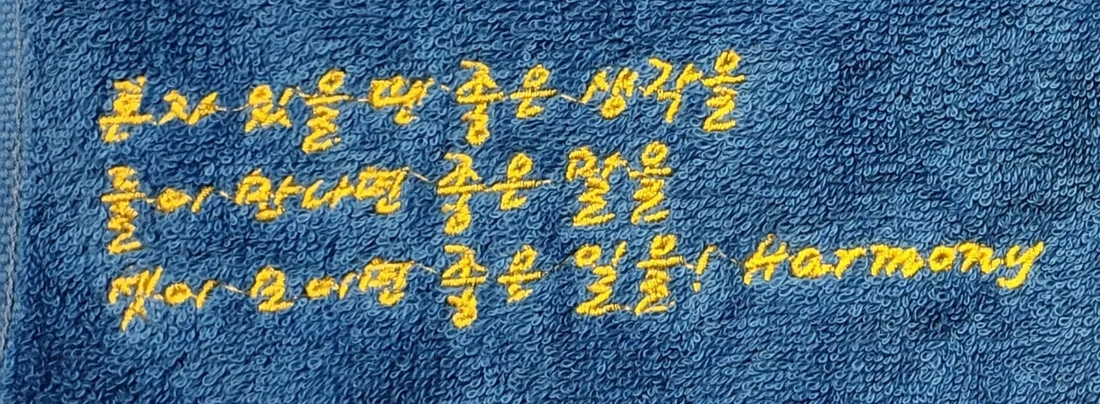 혼자 있을 땐 좋은 생각을
둘이 만나면 좋은 말을
셋이 모이면 좋은 일을! Harmony